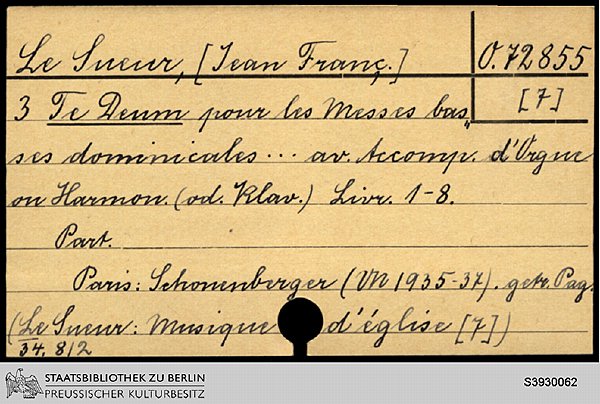 Le Sueur, [Jean Franç.] O. 72855
[7]
3 Te Deum pour les Messes bas-
ses dominicales ... av. Accomp. d'Orgue
ou Harmon. (od. Klav.) Livr. 1-8.
Part.
Paris: Schonenberger (VN 1935-37). getr. Pag.
(Le Sueur: Musique d'église [7])
34. 812
STAATSBIBLIOTHEK ZU BERLIN
PREUSSISCHER KULTURBESITZ
S3930062